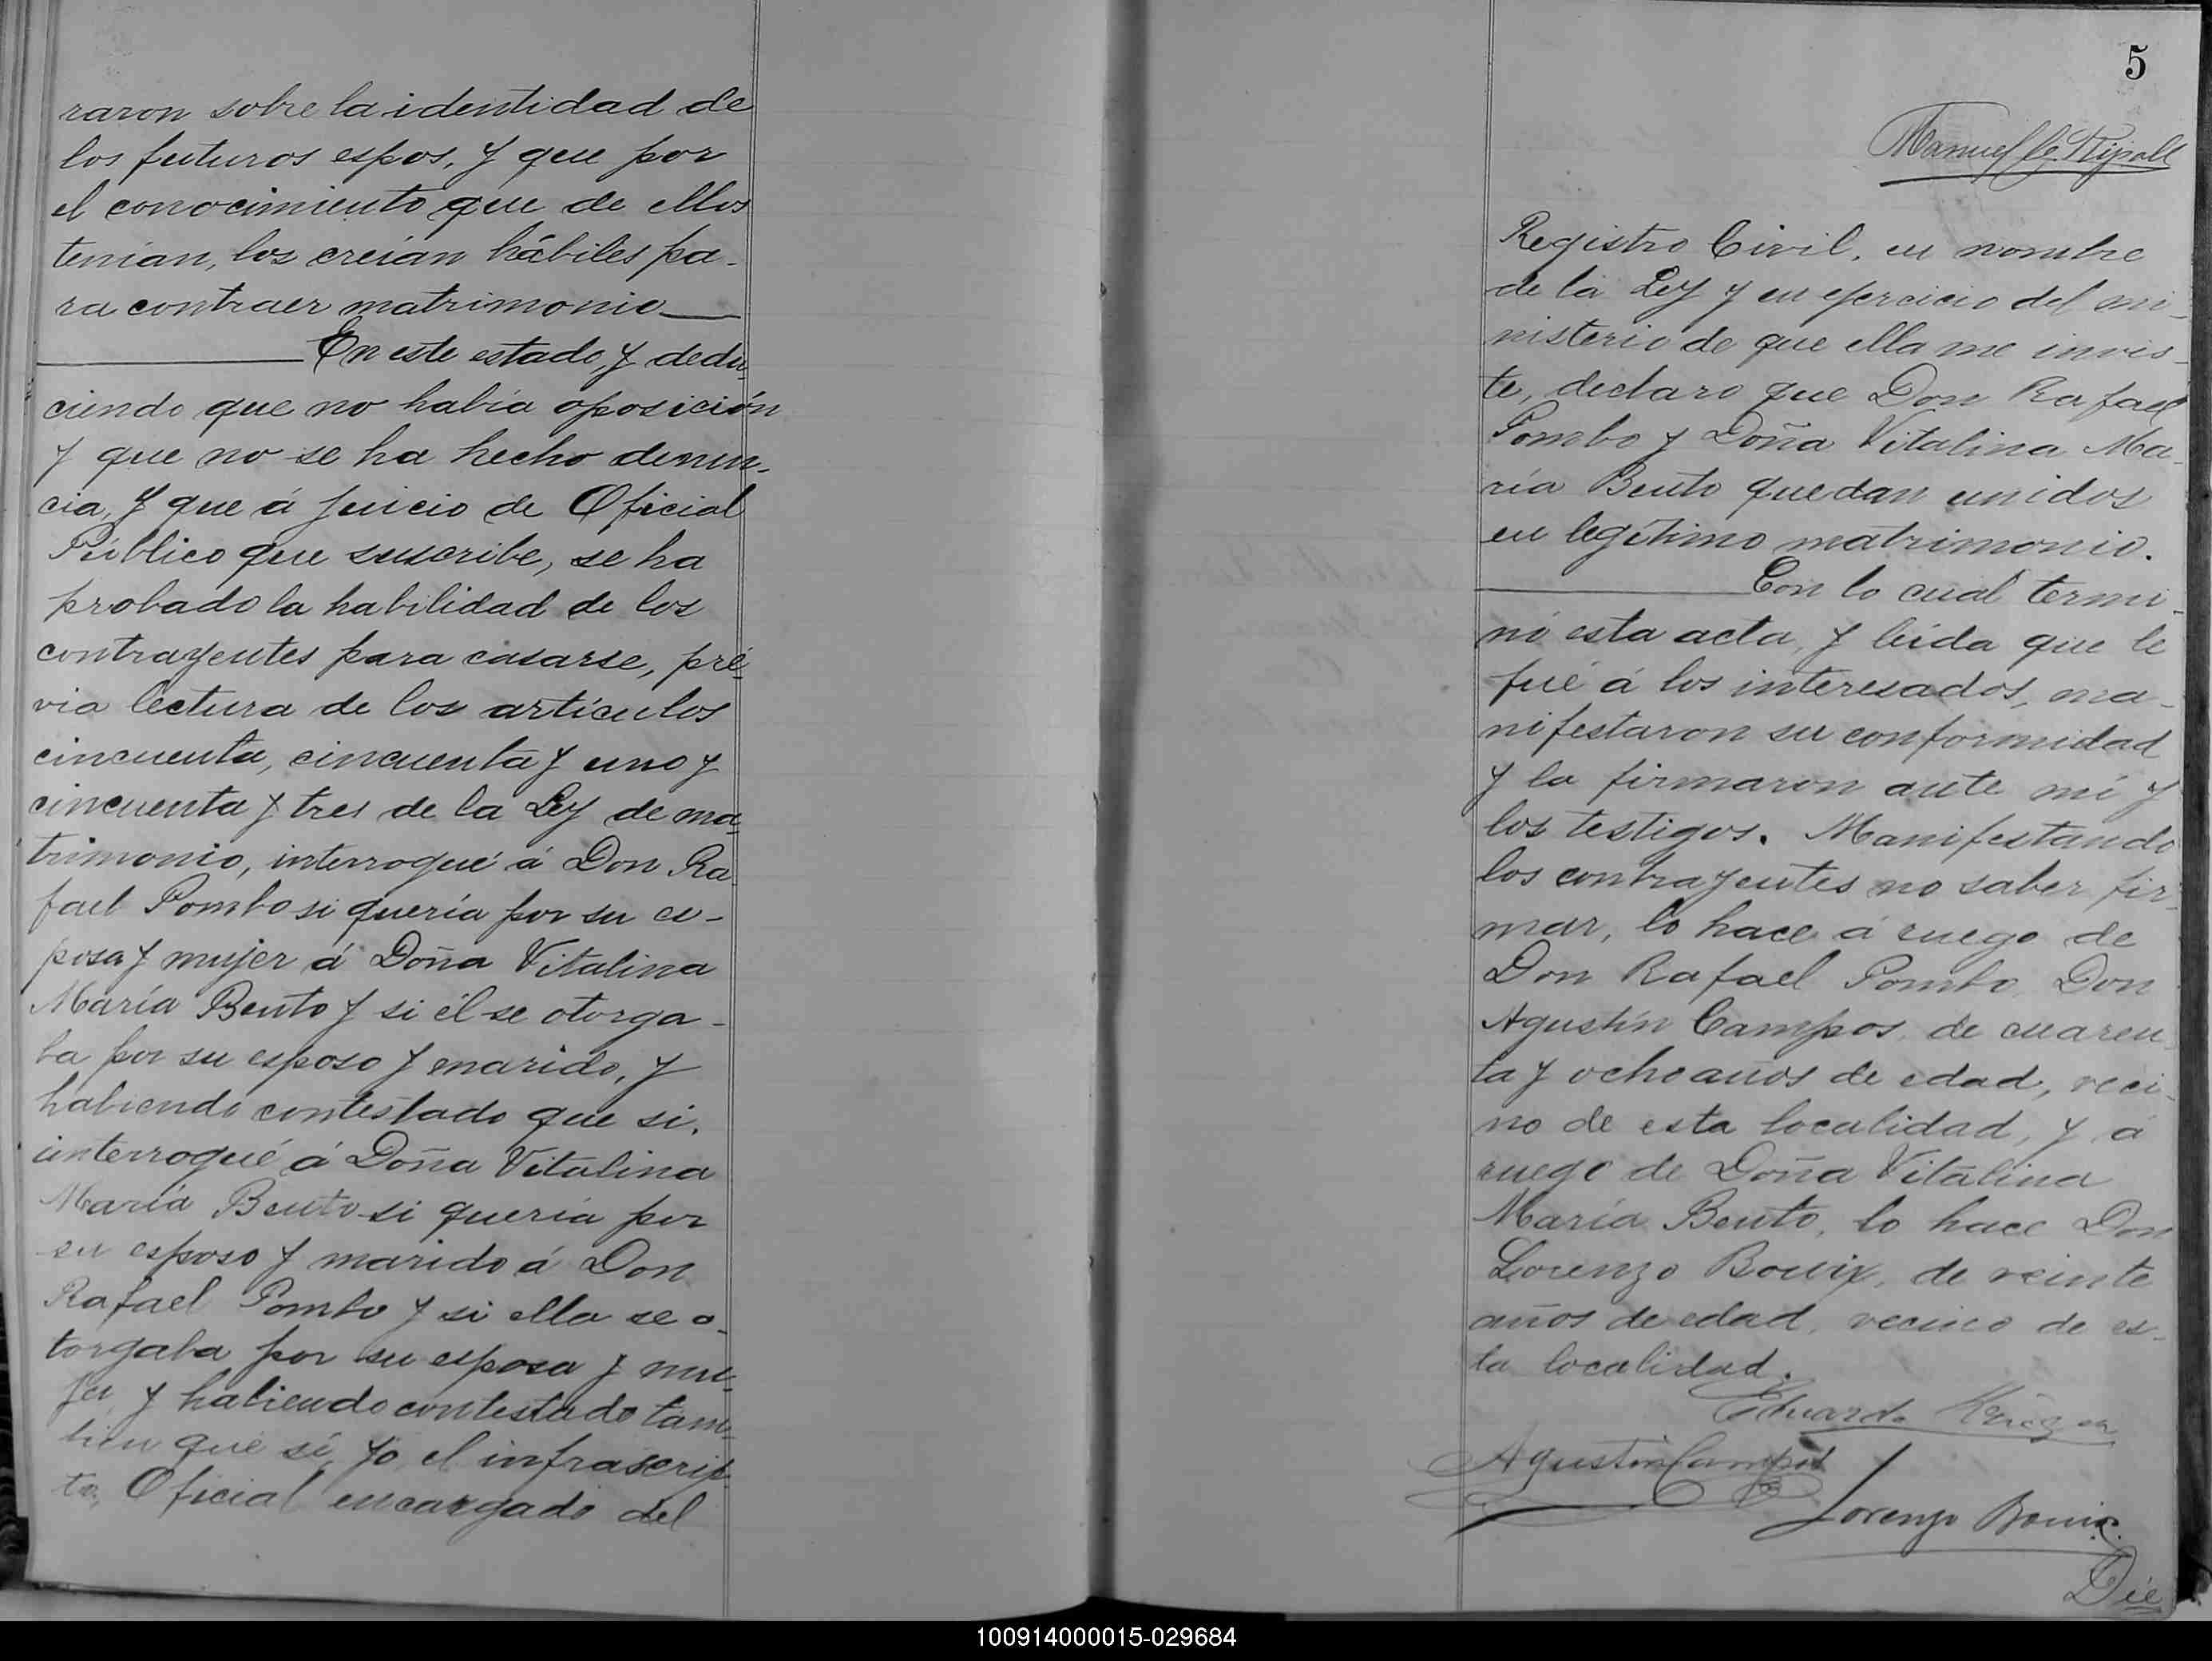 raron sobre la identidad de
los futuros espos, y que por
el conocimiento que de ellos
tenían, los creían hábiles pa-
ra contraer matrimonio
En este estado, y dedu-
ciendo que no había oposición
y que no se ha hecho denun-
cia, y que á juicio de Oficial
Público que suscribe, se ha
probado la habilidad de los
contrayentes para casarse, pré-
via lectura de los artículos
cincuenta, cincuenta y uno y
cincuenta y tres de la Ley de ma-
trimonio, interrogué á Don Ra-
fael Pombo si quería por su es-
posa y mujer á Doña Vitalina
María Bento y si él se otorga-
ba por su esposo y marido, y
habiendo contestado que si,
interrogué á Doña Vitalina
María Bento si quería por
su esposo y marido á Don
Rafael Pombo y si ella se o-
torgaba por su esposa y mu-
jer, y habiendo contestado tam-
bien que sí, yo, el infrascrip-
to, Oficial encargado del
5
Manuel Ripoll
Registro Civil, en nombre
de la Ley y en ejercicio del mi-
nisterio de que ella me invis-
te, declaro que Don Rafael
Pombo y Doña Vitalina Ma-
ría Bento quedan unidos
en legítimo matrimonio.
Con lo cual termi-
nó esta acta, y leída que le
fué á los interesados, ma-
nifestaron su conformidad
y la firmaron ante mí y
los testigos. Manifestando
los contrayentes no saber fir-
mar, lo hace á ruego de
Don Rafael Pombo, Don
Agustín Campos, de cuaren-
ta y ocho años de edad, veci-
no de esta localidad, y á
ruego de Doña Vitalina
María Bento, lo hace Don
Lorenzo Bouix, de veinte
años de edad, vecino de es-
ta localidad.
Eduardo
Agustin Campos
Lorenzo Bouix
Die
100914000015-029684